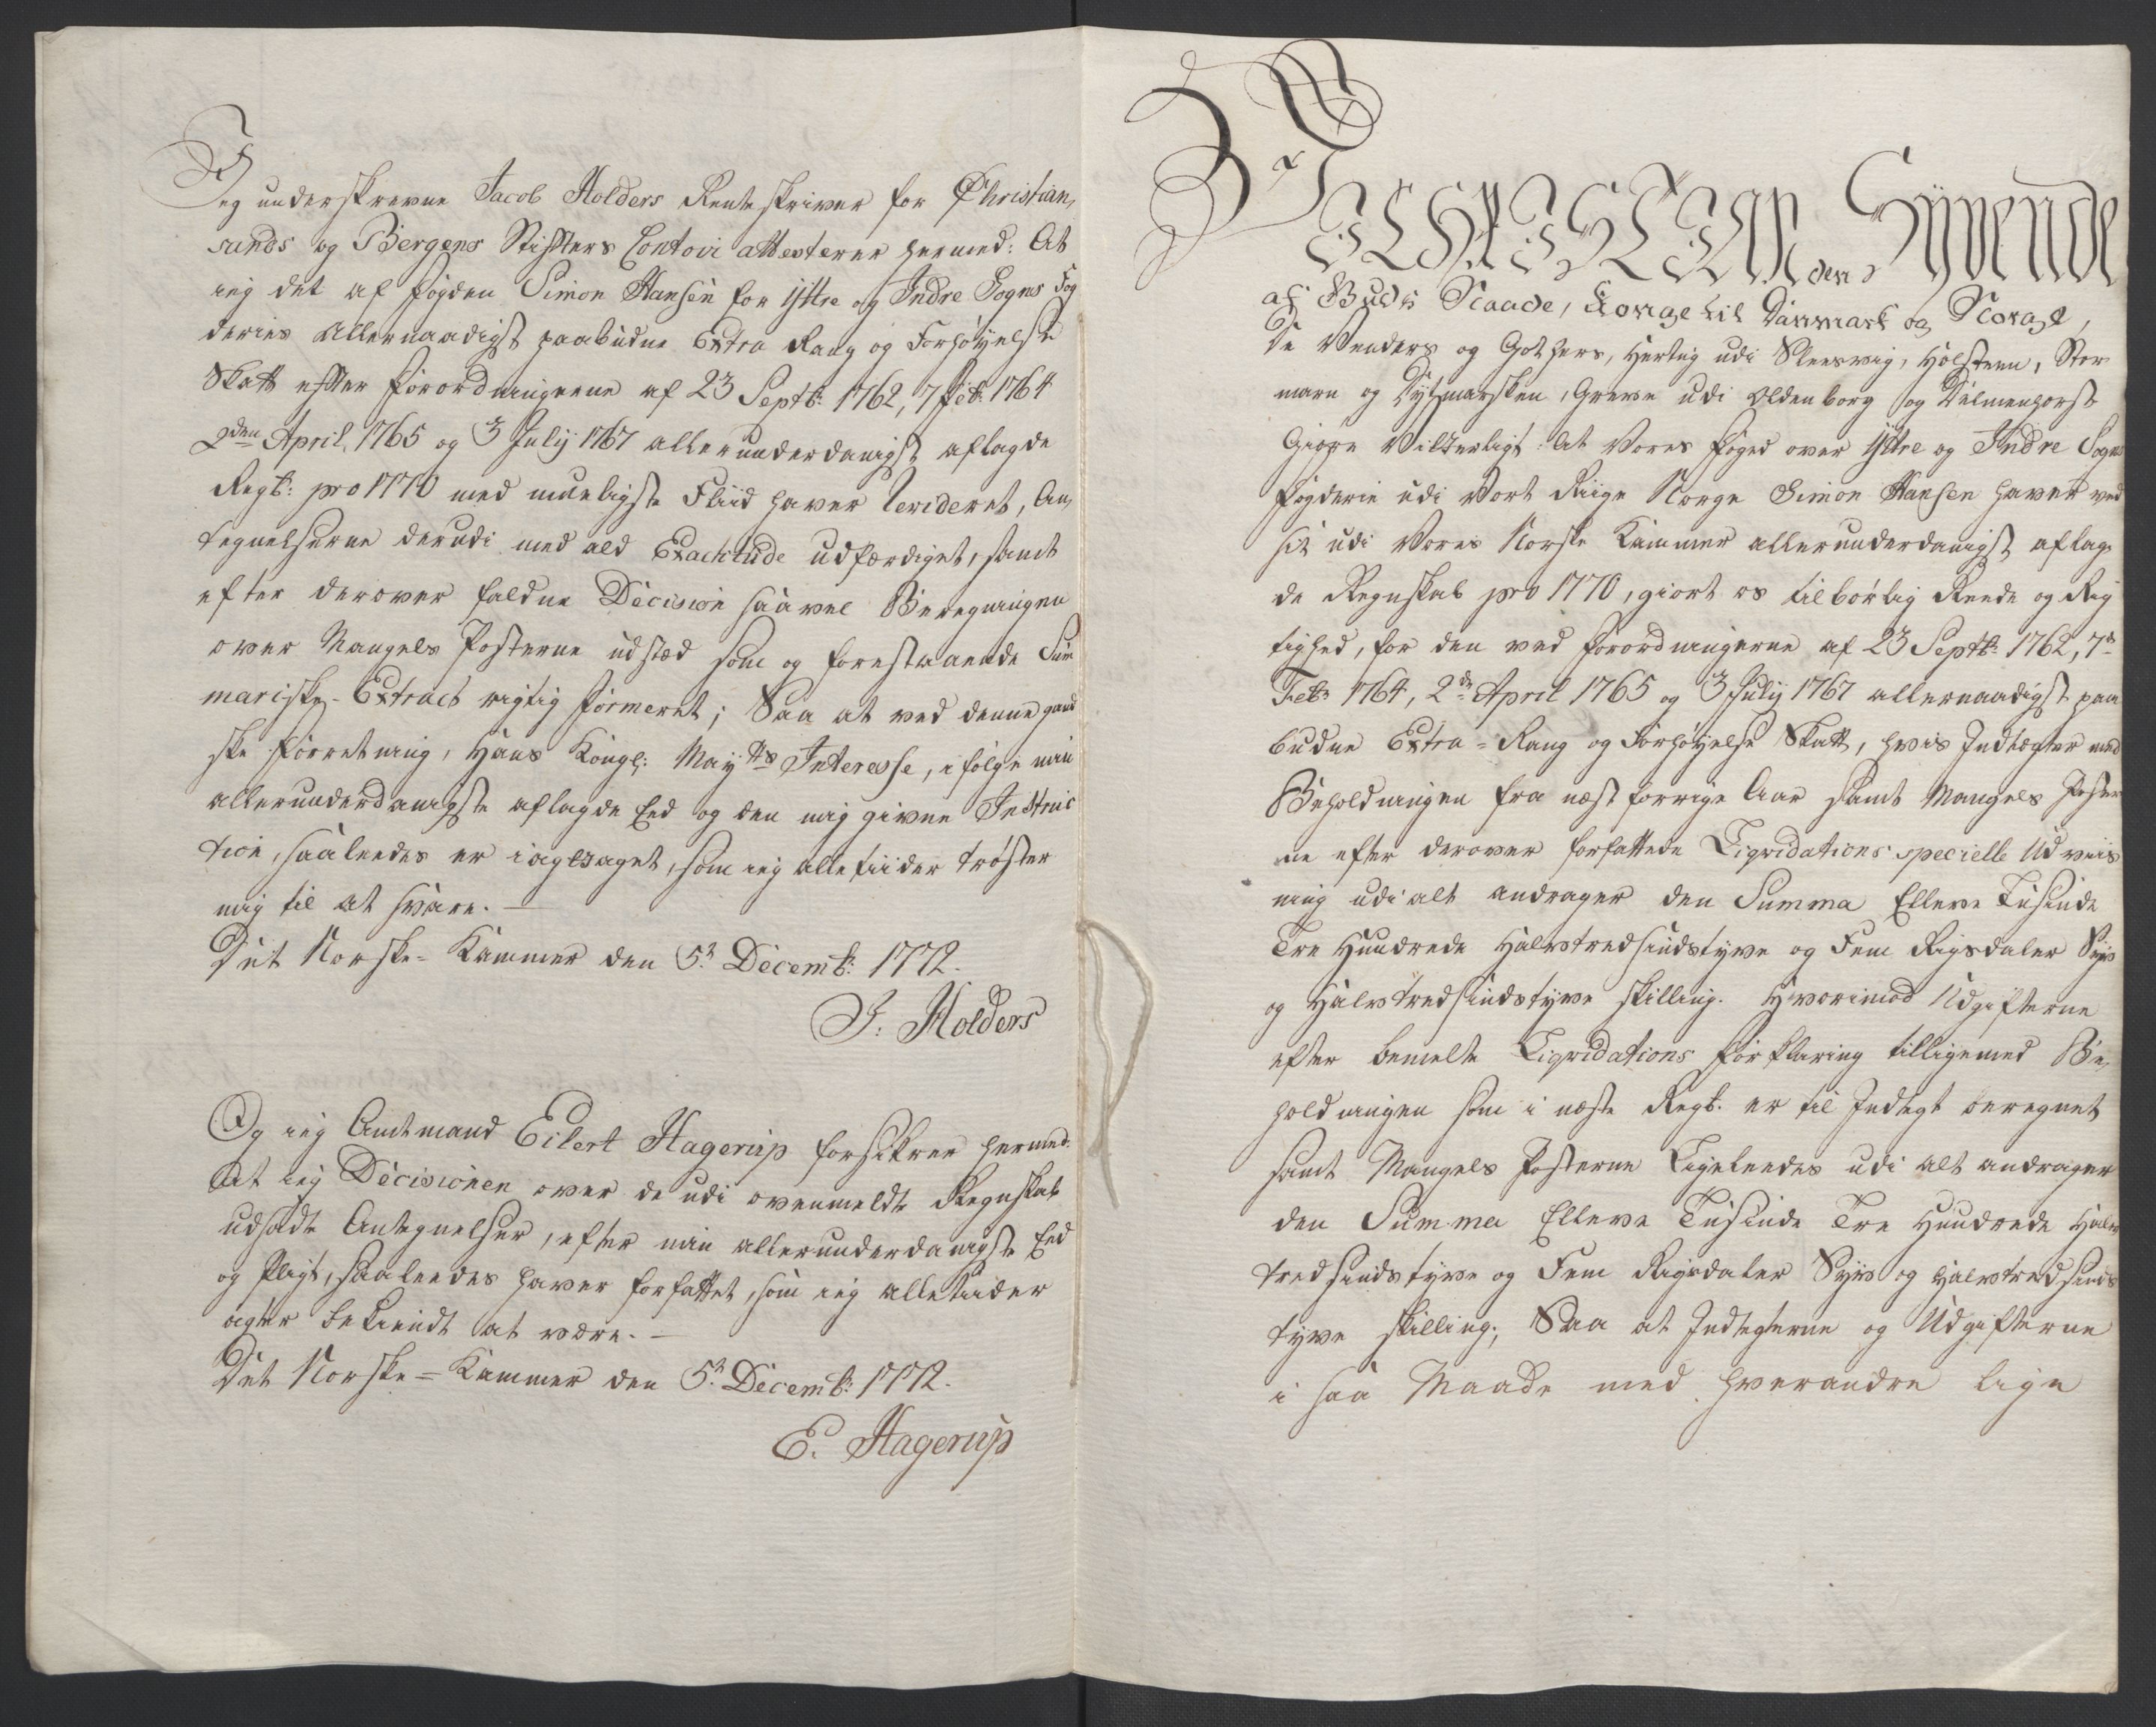 Jeg underskrevne Jacob Holders Renteskriver for Christian,
sands og Bergens Stifters Contoir attesterer hermed: At
ieg det af Fogden Simon Hansen for Yttre og Indre Sogns Fog
deries Allernaadigst paabudne Extra Rang og Forhøyelse
Skatt efter Forordningerne af 23 Septb: 1762, 7 Feb: 1764
2den April, 1765 og 3 July 1767 allerunderdanigst aflagde
Regsk: pro 1770 med mueligste Fliid haver Revideret, An,
tegnelserne derudi med ald Exactitude udfærdiget, samt
efter derover faldne Decision saavel Beregningen
over Mangels Posterne udstæd som og forestaaende Sum
mariske-Extract rigtig formeret; Saa at ved denne gand
ske Forretning, Hans Kongl: Mayts Interesse, i følge min
allerunderdanigste aflagde Eed og den mig givne Instruc
tion, saaleedes er iagttaget, som ieg alletiider trøster
mig til at svare.
Det Norske-Kammer den 5t Decemb: 1772.
J. Holders
Og ieg Amtmand Eilert Hagerup forsikrer hermed:
At ieg Decisionen over de udi ovenmeldte Regnskab
udsadte Antegnelser, efter min allerunderdanigste Eed
og Pligt, saaleedes haver forfattet, som ieg alletiider
agter bekiendt at være.
Det Norske=Kammer den 5t Decemb: 1772.
E. Hagerup
Vi CHRISTIAN den Syvende
af Guds Naade, Konge til Danmark og Norge,
De Venders og Gothers, Hertug udi Sleesvig, Holsteen, Stor
marn og Dytmarsken, Greve udi Oldenborg og Delmenhorst
Giøre Vitterligt: At Vores Foged over Yttre og Indre Sogns
Fogderie udi Vort Riige Norge Simon Hansen haver ved
sit udi Vores Norske Kammer allerunderdanigst aflag,
de Regnskab pro 1770, giort os tilbørlig Reede og Rig
tighed, for den ved Forordningerne af 23 Septb: 1762, 7de
Feb: 1764, 2de April 1765 og 3 July 1767 allernaadigst paa
budne Extra=Rang og Forhøyelse Skatt, hvis Indtægter med
Beholdningen fra næst forrige Aar samt Mangels Poster
ne efter derover forfattede Liqvidations specielle Udviis
ning udi alt andrager den Summa Elleve Tusinde
Tre Hundrede Halvtredsindstyve og Fem Rigsdaler Syv
og Halvtredsindstyve skilling. Hvorimod Udgifterne
efter bemelte Liqvidations Forklaring tilligemed Be,
holdningen som i næste Regsk. er til Indtægt beregnet
samt Mangels Posterne Ligeleedes udi alt andrager
den Summa Elleve Tusinde Tre Hundrede Halv
tredsindstyve og Fem Rigsdaler Syv og Halvtredsinds
tyve skilling; Saa at Indtegterne og Udgifterne
i saa Maade med hverandre lige